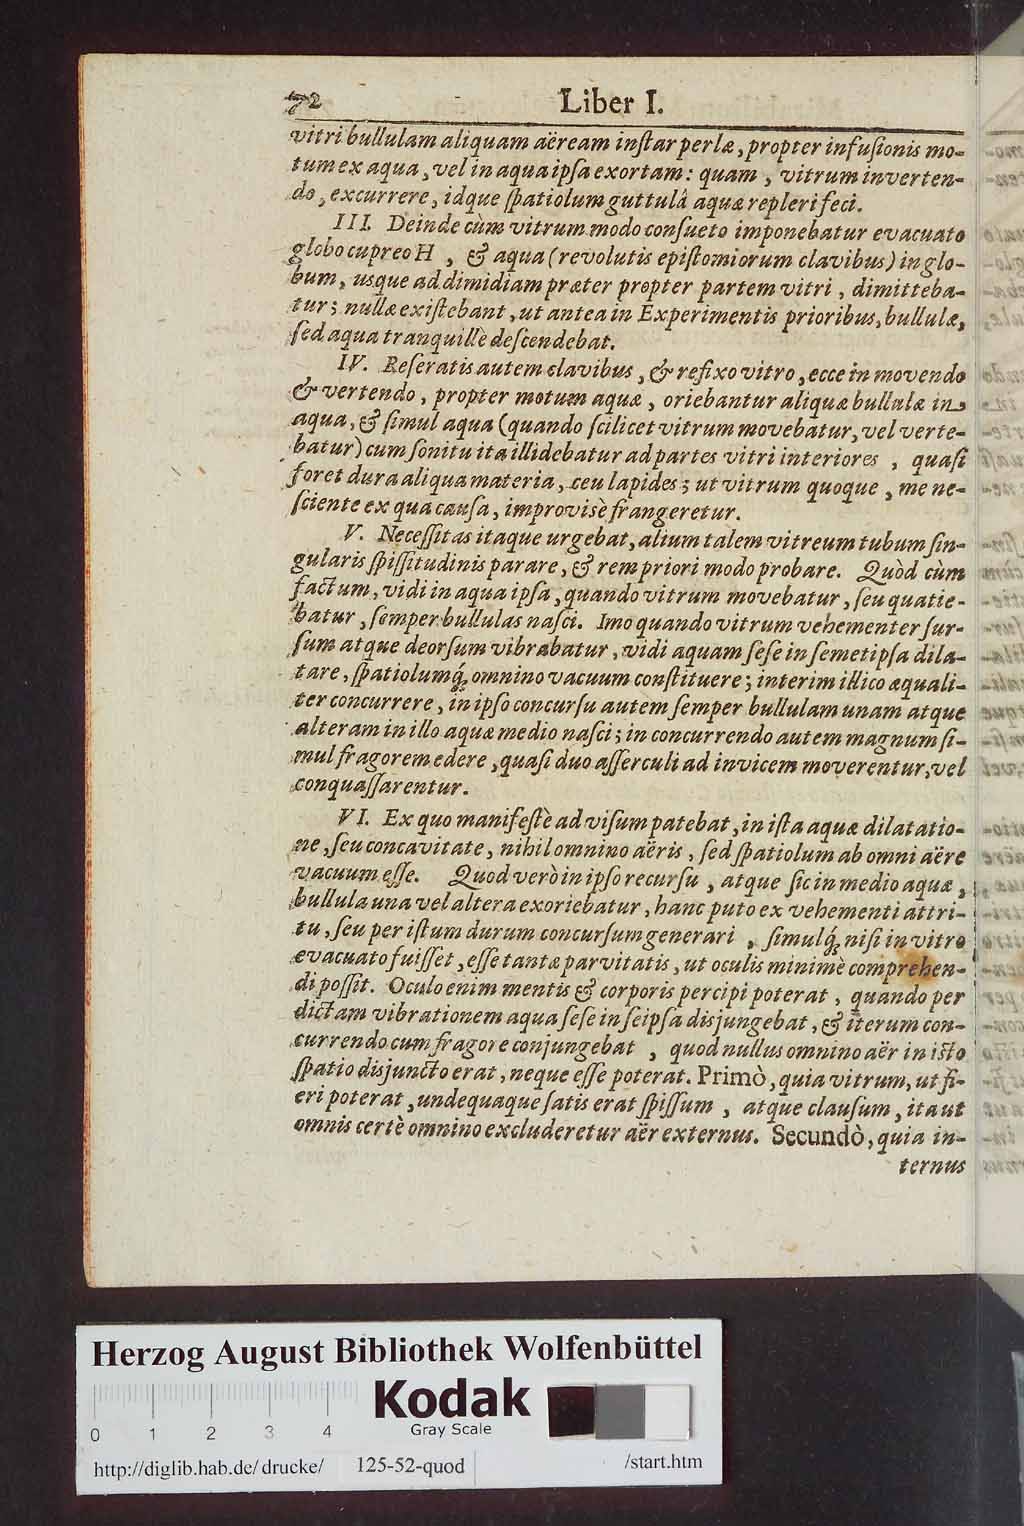 72 Liber I.
vitri bullulam aliquam aëream inſtar perlæ, propter infuſionis mo-
tum ex aqua, vel in aqua ipſa exortam: quam, vitrum inverten-
do, excurrere, idque ſpatiolum guttulâ aquæ repleri feci.
III. Deinde cùm vitrum modo conſueto imponebatur evacuato
globo cupreo H, & aqua (revolutis epiſtomiorum clavibus) in glo-
bum, usque ad dimidiam præter propter partem vitri, dimitteba-
tur; nullæ exiſtebant, ut antea in Experimentis prioribus, bullulæ,
ſed aqua tranquillè deſcendebat.
IV. Reſeratis autem clavibus, & refixo vitro, ecce in movendo
& vertendo, propter motum aquæ, oriebantur aliquæ bullulæ in
aqua, & ſimul aqua (quando ſcilicet vitrum movebatur, vel verte-
batur) cum ſonitu ita illidebatur ad partes vitri interiores, quaſi
foret dura aliqua materia, ceu lapides; ut vitrum quoque, me ne-
ſciente ex qua cauſa, improvisè frangeretur.
V. Neceſſitas itaque urgebat, alium talem vitreum tubum ſin-
gularis ſpiſſitudinis parare, & rem priori modo probare. Quòd cùm
factum, vidi in aqua ipſa, quando vitrum movebatur, ſeu quatie-
batur, ſemper bullulas naſci. Imo quando vitrum vehementer ſur-
ſum atque deorſum vibrabatur, vidi aquam ſeſe in ſemetipſa dila-
tare, ſpatiolumq́; omnino vacuum conſtituere; interim illico æquali-
ter concurrere, in ipſo concurſu autem ſemper bullulam unam atque
alteram in illo aquæ medio naſci; in concurrendo autem magnum ſi-
mul fragorem edere, quaſi duo aſſerculi ad invicem moverentur, vel
conquaſſarentur.
VI. Ex quo manifeſtè ad viſum patebat, in iſta aquæ dilatatio-
ne, ſeu concavitate, nihil omnino aëris, ſed ſpatiolum ab omni aëre
vacuum eſſe. Quod verò in ipſo recurſu, atque ſic in medio aquæ,
bullula una vel altera exoriebatur, hanc puto ex vehementi attri-
tu, ſeu per iſtum durum concurſum generari, ſimulq́; niſi in vitro
evacuato fuiſſet, eſſe tantæ parvitatis, ut oculis minimè comprehen-
di poſſit. Oculo enim mentis & corporis percipi poterat, quando per
dictam vibrationem aqua ſeſe in ſeipſa disjungebat, & iterum con-
currendo cum fragore conjungebat, quod nullus omnino aër in iſto
ſpatio disjuncto erat, neque eſſe poterat. Primò, quia vitrum, ut fi-
eri poterat, undequaque ſatis erat ſpiſſum, atque clauſum, ita ut
omnis certè omnino excluderetur aër externus. Secundò, quia in-
ternus
Herzog August Bibliothek Wolfenbüttel
Kodak
Gray Scale
0 1 2 3 4
http://diglib.hab.de/drucke/ 125-52-quod /start.htm